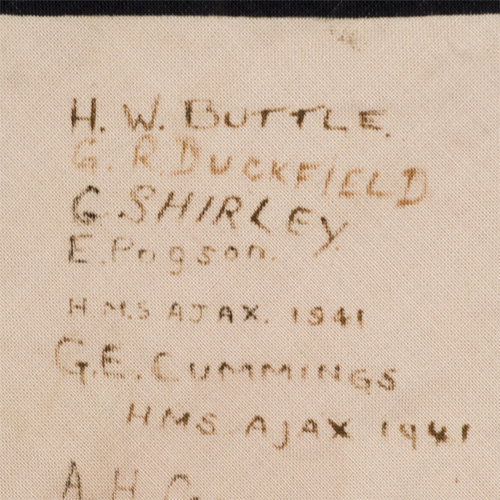 H. W. BUTTLE.
G. R. DUCKFIELD
G. SHIRLEY
E. Pogson.
H.M.S AJAX. 1941
G.E. CUMMINGS
HMS AJAX 1941
A H